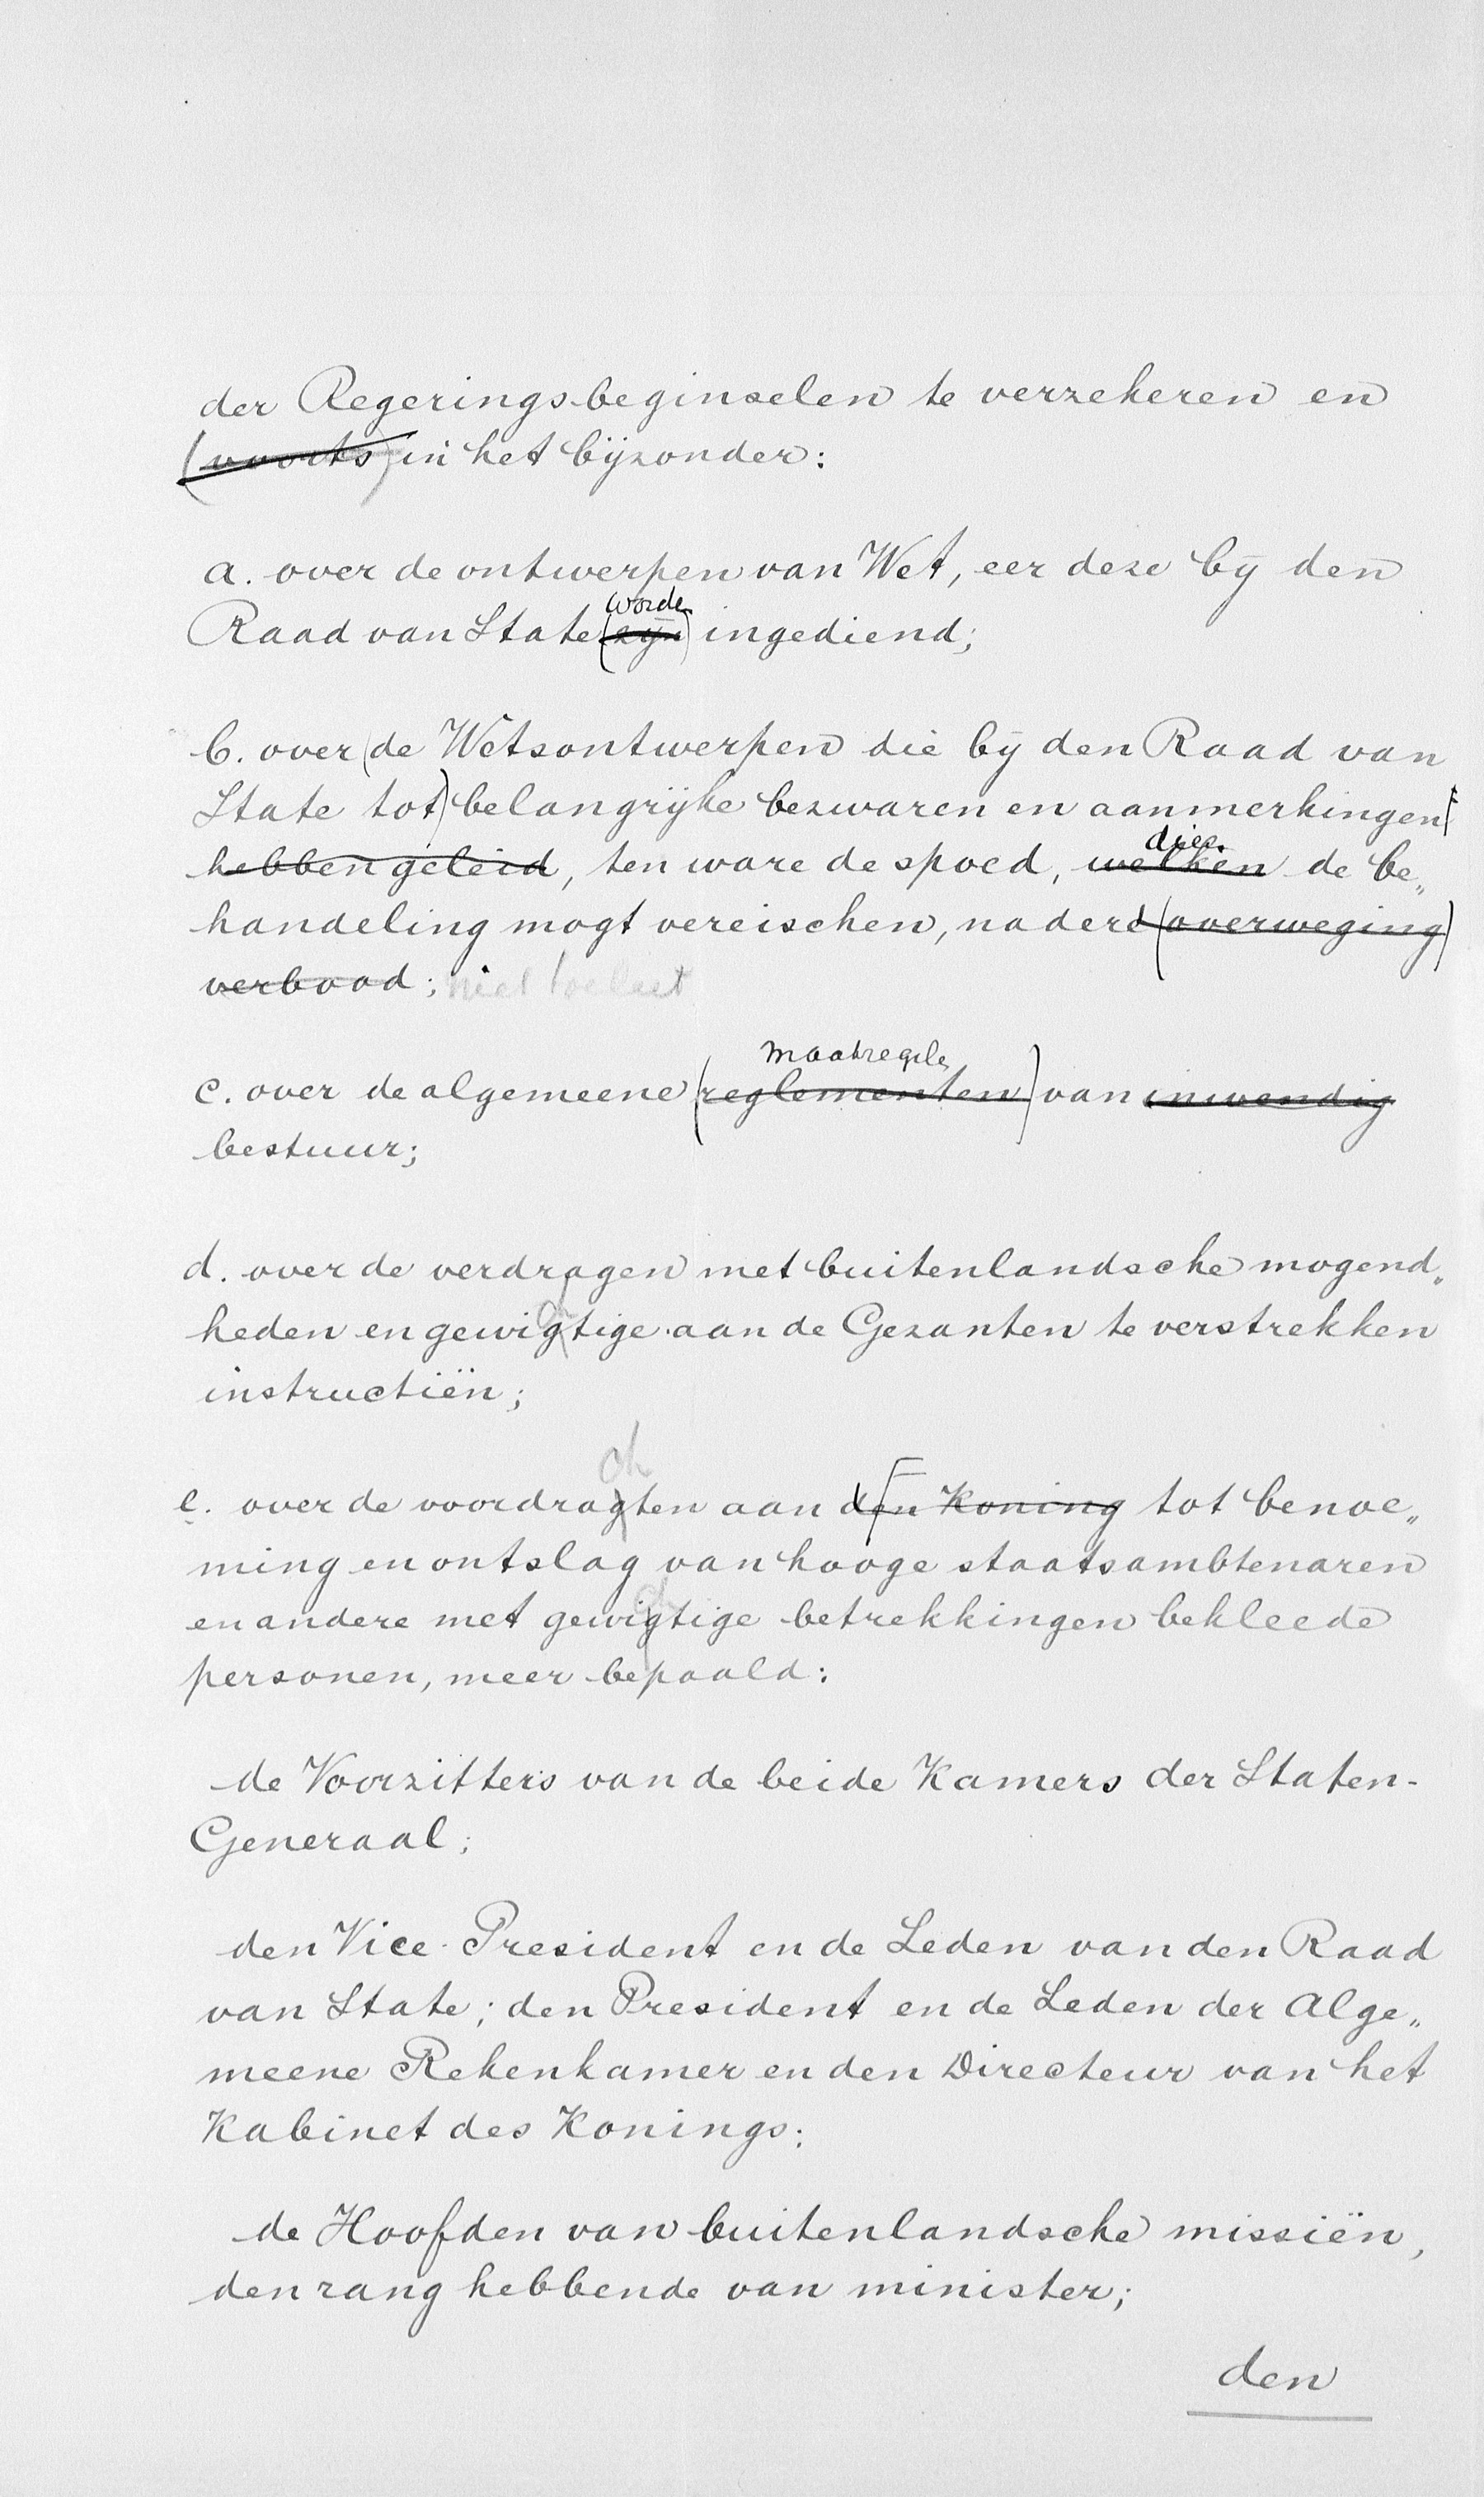 der Regeringsbeginselen te verzekeren en
(voorts) in het bijzonder:
a. over de ontwerpen van Wet, eer deze bij den
worden
Raad van State (zijn) ingediend;
b. over (de Wetsontwerpen die bij den Raad van
State tot) belangrijke bezwaren en aanmerkingen
die
hebben geleid, ten ware de spoed, welken de be„
handeling mogt vereischen, nadere (overweging)
verbood; niet toelaat
maatregelen
c. over de algemeene (reglementen) van inwendig
bestuur;
d. over de verdragen met buitenlandsche mogend„
heden en gewigtige aan de Gezanten te verstrekken
instructiën;
ch
e. over de voordragten aan den Koning tot benoe„
ming en ontslag van hooge staatsambtenaren
en andere met gewigtige betrekkingen bekleede
personen, meer bepaald:
de Voorzitters van de beide Kamers der Staten-
Generaal;
den Vice-President en de Leden van den Raad
van State; den President en de Leden der Alge„
meene Rekenkamer en den Directeur van het
Kabinet des Konings;
de Hoofden van buitenlandsche missiën,
den rang hebbende van minister;
den